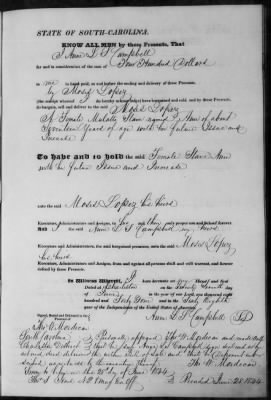 STATE OF SOUTH-CAROLINA.
KNOW ALL MEN by these Presents, That
I Ann L S Campbell
for and in consideration of the sum of Four Hundred Dollars
to me in hand paid, at and before the sealing and delivery of these Presents,
by Moses Lopez
(the receipt whereof I do hereby acknowledge) have bargained and sold, and by these Presents,
do bargain, sell and deliver to the said Moses Lopez
A Female Mulatto Slave named Ann of about
Seventeen Years of age with her future Issue and
Increase
To have and to hold the said Female Slave Ann
with her future Issue and Increase
unto the said Moses Lopez his
Executors, Administrators and Assigns, to his and their only proper use and behoof forever
And I the said Ann L S Campbell my
Executors and Administrators, the said bargained premises, unto the said Moses Lopez
his
Executors, Administrators and Assigns, from and against all persons shall and will warrant, and forever
defend by these Presents.
In Witness Whereof, I have hereunto set my Hand and Seal
Dated at Charleston on the Twenty
day of June in the year of our Lord one thousand eight
hundred and Forty Four and in the Sixty Eighth
year of the Independence of the United States of America.
Signed, Sealed and Delivered in the Presence of
Ann L S Campbell
Thos W Mordecai
South Carolina
Charleston District
Personally appeared Thos W Mordecai and made oath
that he saw Ann L S Campbell sign seal and
deliver the within Bill of Sale and that he
witness
Thos W Mordecai
Sworn to before me the day of June 1844
Recorded June 28 1844